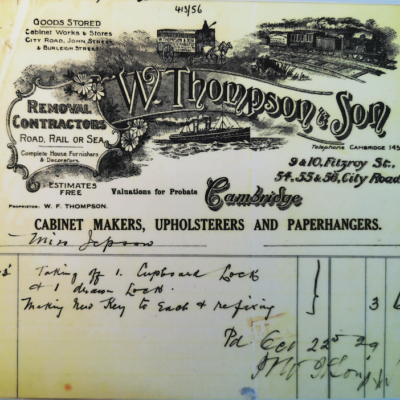 413/56
GOODS STORED
Cabinet Works & Stores
CITY ROAD, JOHN STREET
& BURLEIGH STREET
W. THOMPSON & SON
REMOVAL
CONTRACTORS
ROAD, RAIL OR SEA
Complete House Furnishers
& Decorators
ESTIMATES
FREE
Telephone CAMBRIDGE 145
9 & 10, Fitzroy St.,
54, 55 & 56, City Road
Valuations for Probate
Cambridge
PROPRIETOR: W. F. THOMPSON.
CABINET MAKERS, UPHOLSTERERS AND PAPERHANGERS.
Miss Jepson
Taking off 1. Cupboard Lock
& 1 drawer Lock.
Making New Key to Each & refixing 3
Pd Oct 22 29